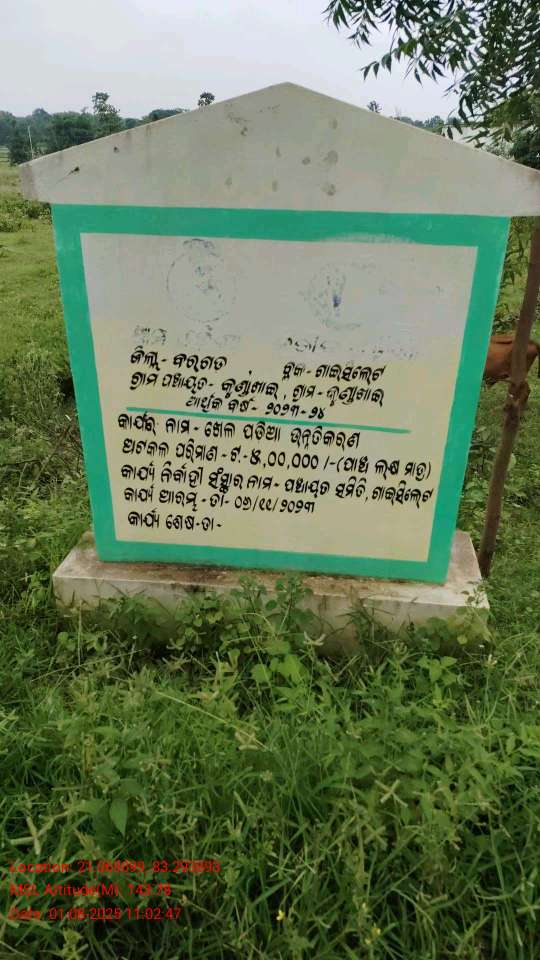 ଜିଲ୍ଲା - ବରଗଡ ବ୍ଲକ - ଗାଇସିଲେଟ
ଗ୍ରାମ ପଞ୍ଚାୟତ - କୁଣ୍ଡାଖାଇ, ଗ୍ରାମ - କୁଣ୍ଡାଖାଇ
ଆର୍ଥିକ ବର୍ଷ - ୨୦୨୩-୨୪
କାର୍ଯ୍ୟର ନାମ - ଖେଳ ପଡିଆ ଉନ୍ନତିକରଣ
ଅଟକଳ ପରିମାଣ - ଟ. ୫,00,000 /- (ପାଞ୍ଚ ଲକ୍ଷ ମାତ୍ର)
କାର୍ଯ୍ୟ ନିର୍ବାହୀ ସଂସ୍ଥାର ନାମ - ପଞ୍ଚାୟତ ସମିତି, ଗାଇସିଲେଟ
କାର୍ଯ୍ୟ ଆରମ୍ଭ - ତା - ୦୬/୧୧/୨୦୨୩
କାର୍ଯ୍ୟ ଶେଷ - ତା -
Location: 21.068699, 83.293893
MSL Altitude(M): 143.78
Date: 01-08-2025 11:02:47